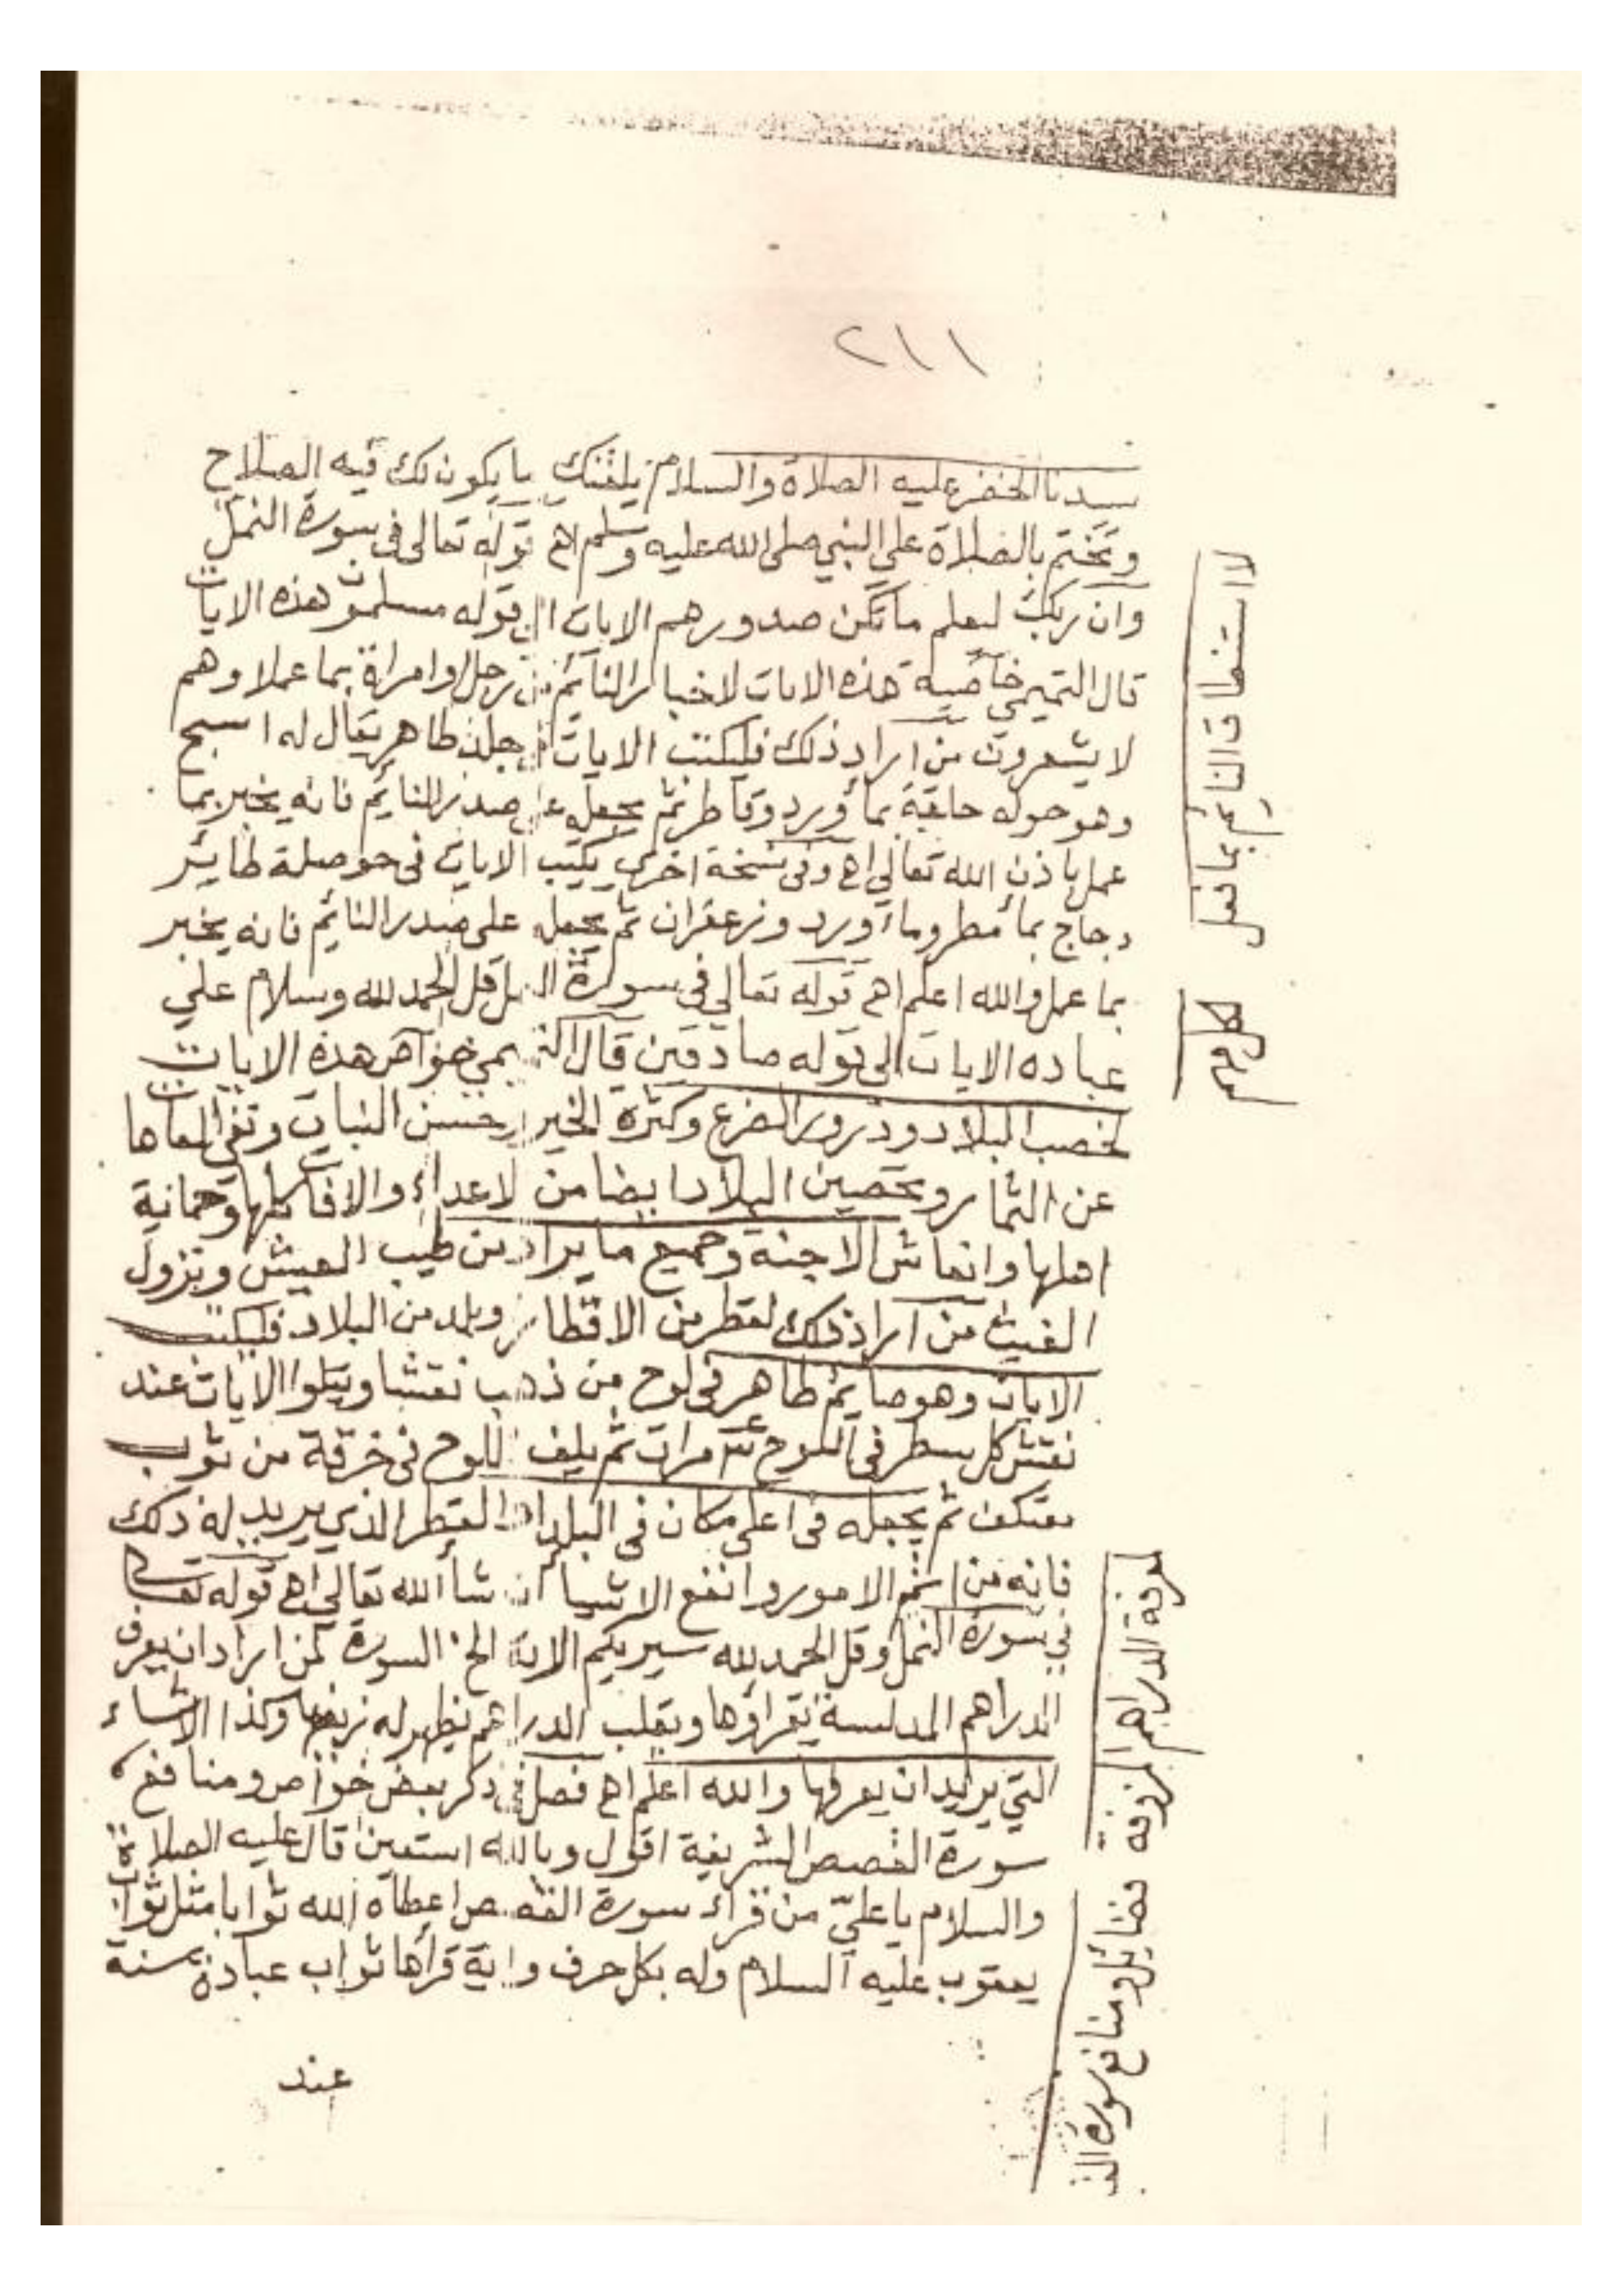 ٢١١
سيدنا الخضر عليه الصلاة والسلام يلقنك ما يكون لك فيه الصلاح
وتختم بالصلاة على النبي صلى الله عليه وسلم اه قوله تعالى في سورة النمل
وان ربك ليعلم ما تكن صدورهم الايات الى قوله مسلمون هذه الايات
قال التميمي خاصية هذه الايات لاخبار النائم من رجل او امراة بما عملا وهم
لا يشعرون من اراد ذلك فليكتب الايات في جلد طاهر يقال له اسبح
وهو حوله بمأ ورد وقاطر ثم يجعل على صدر النائم فانه يخبر بما
عمل باذن الله تعالى اه وفي نسخة اخرى يكتب الايات في حوصلة طائر
دجاج بمأ مطر ومأ ورد وزعفران ثم يجعل على صدر النائم فانه يخبر
بما عمل والله اعلم اه قوله تعالى في سورة النمل قل الحمد لله وسلام على
عباده الايات الى قوله صادقين قال التميمي خواص هذه الايات
لخصب البلاد ودرور الضرع وكثرة الخير وحسن النبات ونفي العاهات
عن الثمار وتحصين البلاد ايضا من الاعداء والافات كلها وحمانية
اهلها وانعاش الاجنة وجميع ما يراد من طيب العيش ونزول
الغيث من اراد ذلك لقطر من الاقطار وبلد من البلاد فليكتب
الايات وهو صايم طاهر في لوح من ذهب نقشا ويتلوا الايات عند
نقش كل سطر في اللوح مرات ثم يلف اللوح في خرقة من ثوب
معتكف ثم يجعله في اعلى مكان في البلد او القطر الذي يريد له ذلك
فانه من الامور وانفع الاشيا ان شأ الله تعالى اه قوله تعالى
في سورة النمل وقل الحمد لله سيريكم الاية الخ السورة لمن اراد ان يعرف
الدراهم المدلسة يقراوها ويقلب الدراهم يظهر له زيفها وكذا الاشياء
التي يريد ان يعرفها والله اعلم اه فصل في ذكر بعض خواص ومنافع
سورة القصص الشريفة اقول وبالله استعين قال عليه الصلاة
والسلام يا علي من قراء سورة القصص اعطاه الله ثوابا مثل ثواب
يعقوب عليه السلام وله بكل حرف واية قراها ثواب عبادة سنة
عند
لاستنطاق النائم بما فعل
معرفة الدراهم المزوفة
فضائل ومنافع سورة